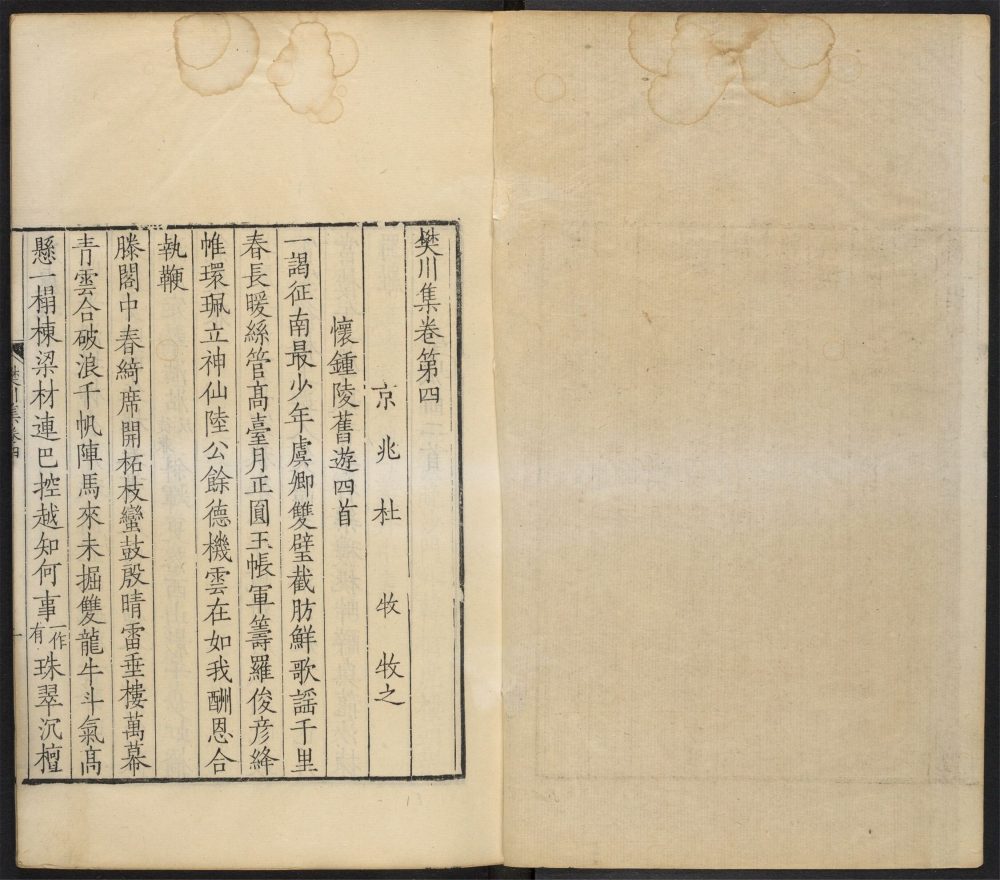 樊川集卷第四
京兆杜牧牧之
懷鍾陵舊遊四首
一謁征南最少年虞卿雙璧截肪鮮歌謡千里
春長暖絲管髙臺月正圓玉帳軍籌羅俊彦絳
帷環珮立神仙陸公餘德機雲在如我酬恩合
執鞭
滕閣中春綺席開柘枝蠻鼓殷晴雷垂樓萬幕
青雲合破浪千帆陣馬來未掘雙龍牛斗氣髙
懸一榻棟梁材連巴控越知何事一作有珠翠沉檀
樊川集卷四
一